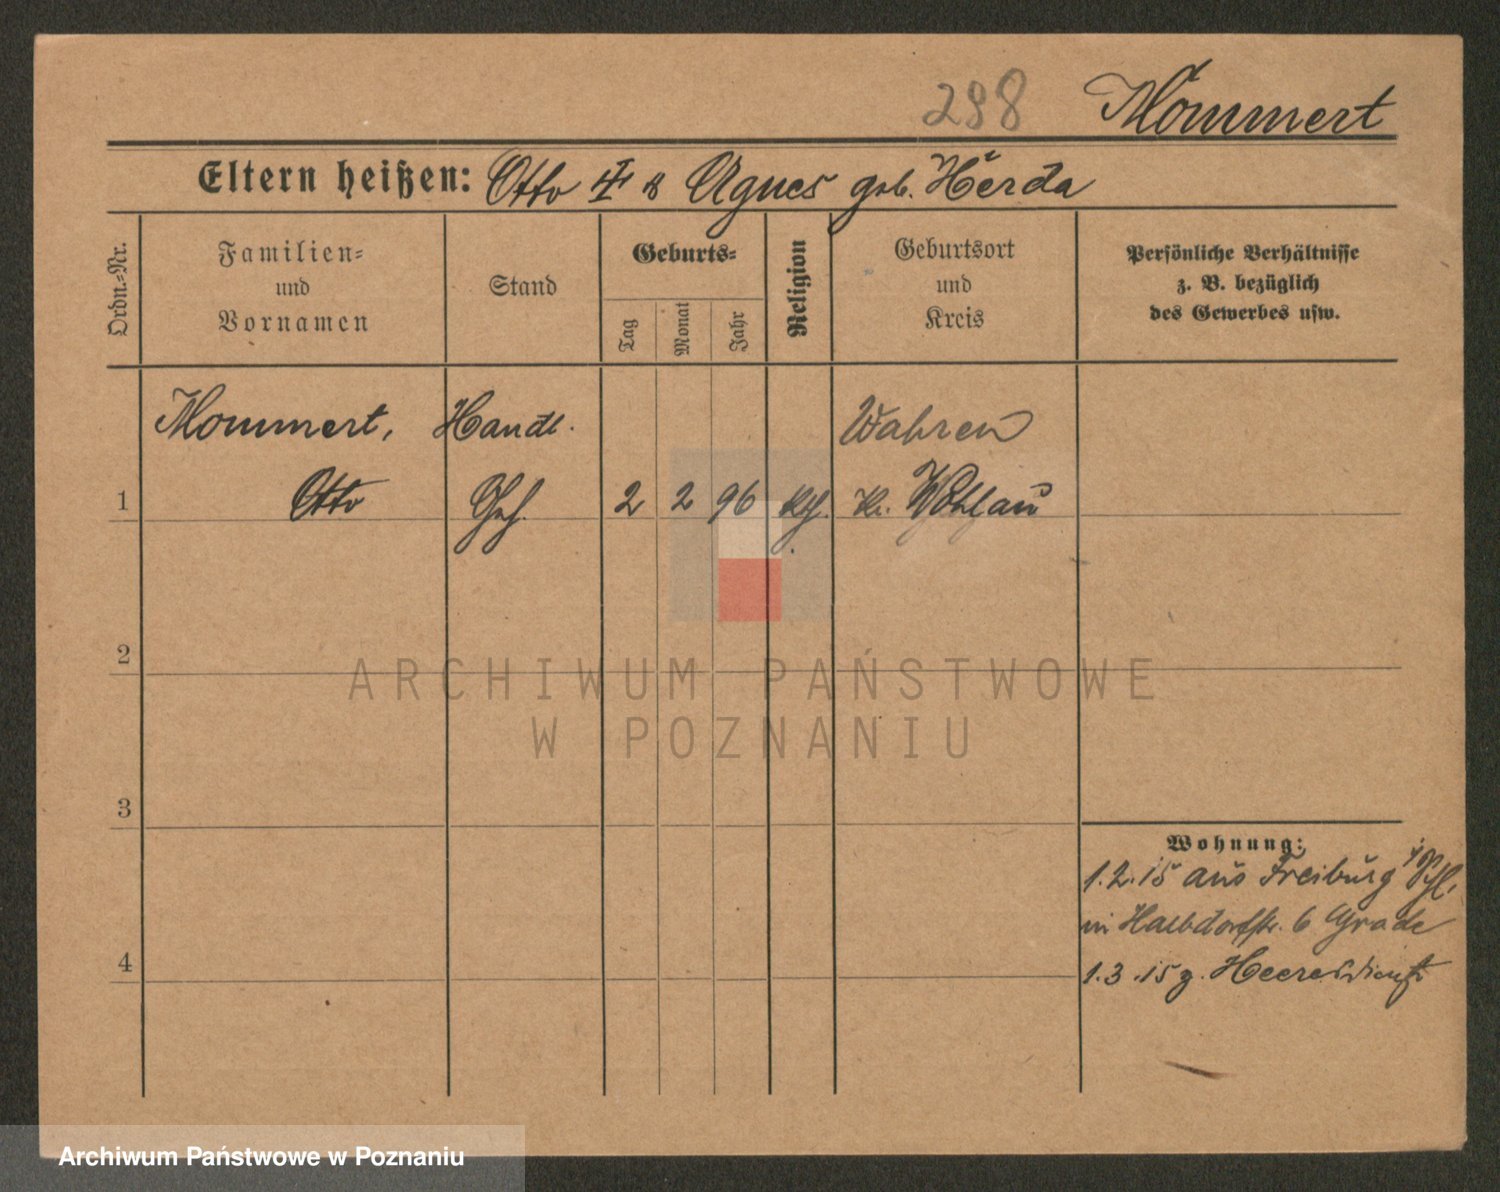 298 Mommert
Eltern heißen: Otto & Agnes geb. Herda
Ordn.-Nr.
Familien-
und
Vornamen
Stand
Geburts-
Tag
Monat
Jahr
Religion
Geburtsort
und
Kreis
Persönliche Verhältnisse
z. B. bezüglich
des Gewerbes usw.
Mommert, Handl. Wahren
1 Otto Geh. 2 2 96 kth. Kr. Wohlau
2
ARCHIWUM PAŃSTWOWE
W POZNANIU
3
Wohnung:
1.2.15 aus Freiburg i/Schl.
in Halbdorfstr. 6 Grade
4
1.3.15 z. Heeresdienst
Archiwum Państwowe w Poznaniu